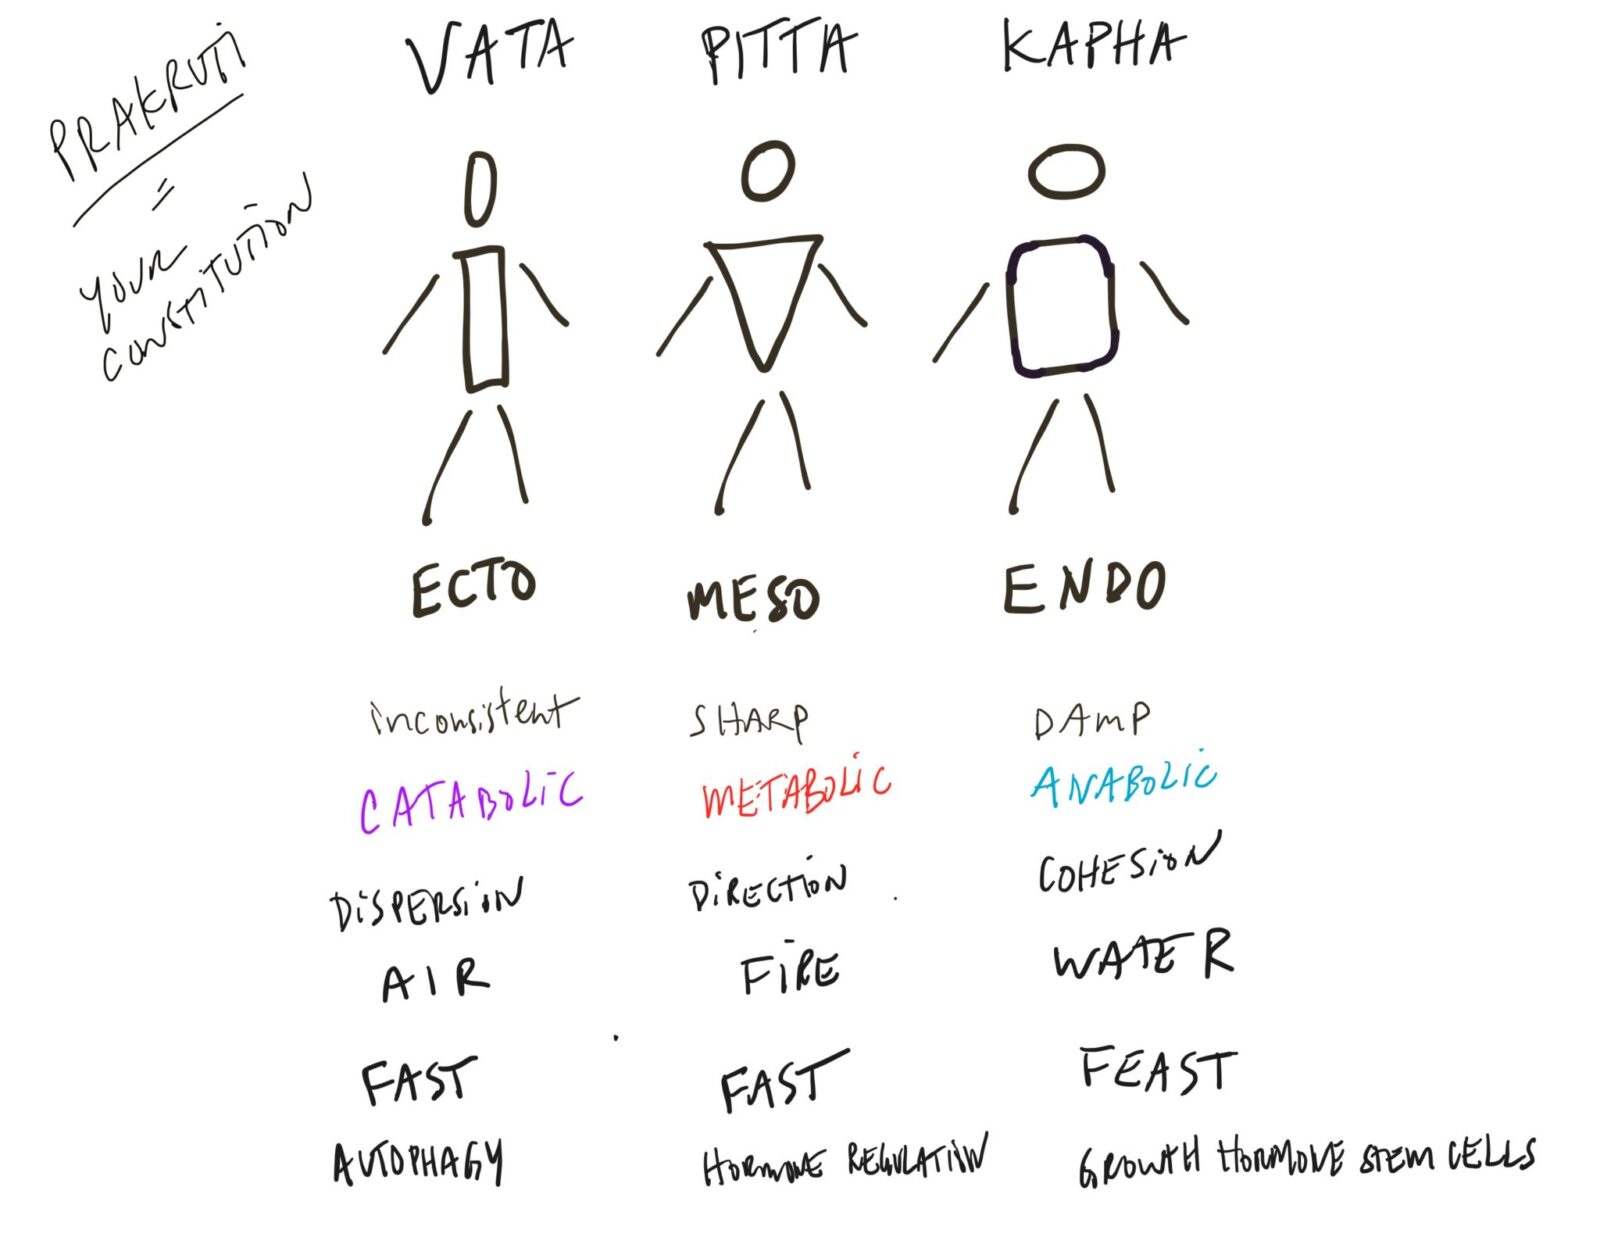 PRAKRUTI
=
YOUR
CONSTITUTION
VATA PITTA KAPHA
ECTO MESO ENDO
inconsistent SHARP DAMP
CATABOLIC METABOLIC ANABOLIC
DISPERSION DIRECTION COHESION
AIR FIRE WATER
FAST FAST FEAST
AUTOPHAGY HORMONE REGULATION GROWTH HORMONE STEM CELLS